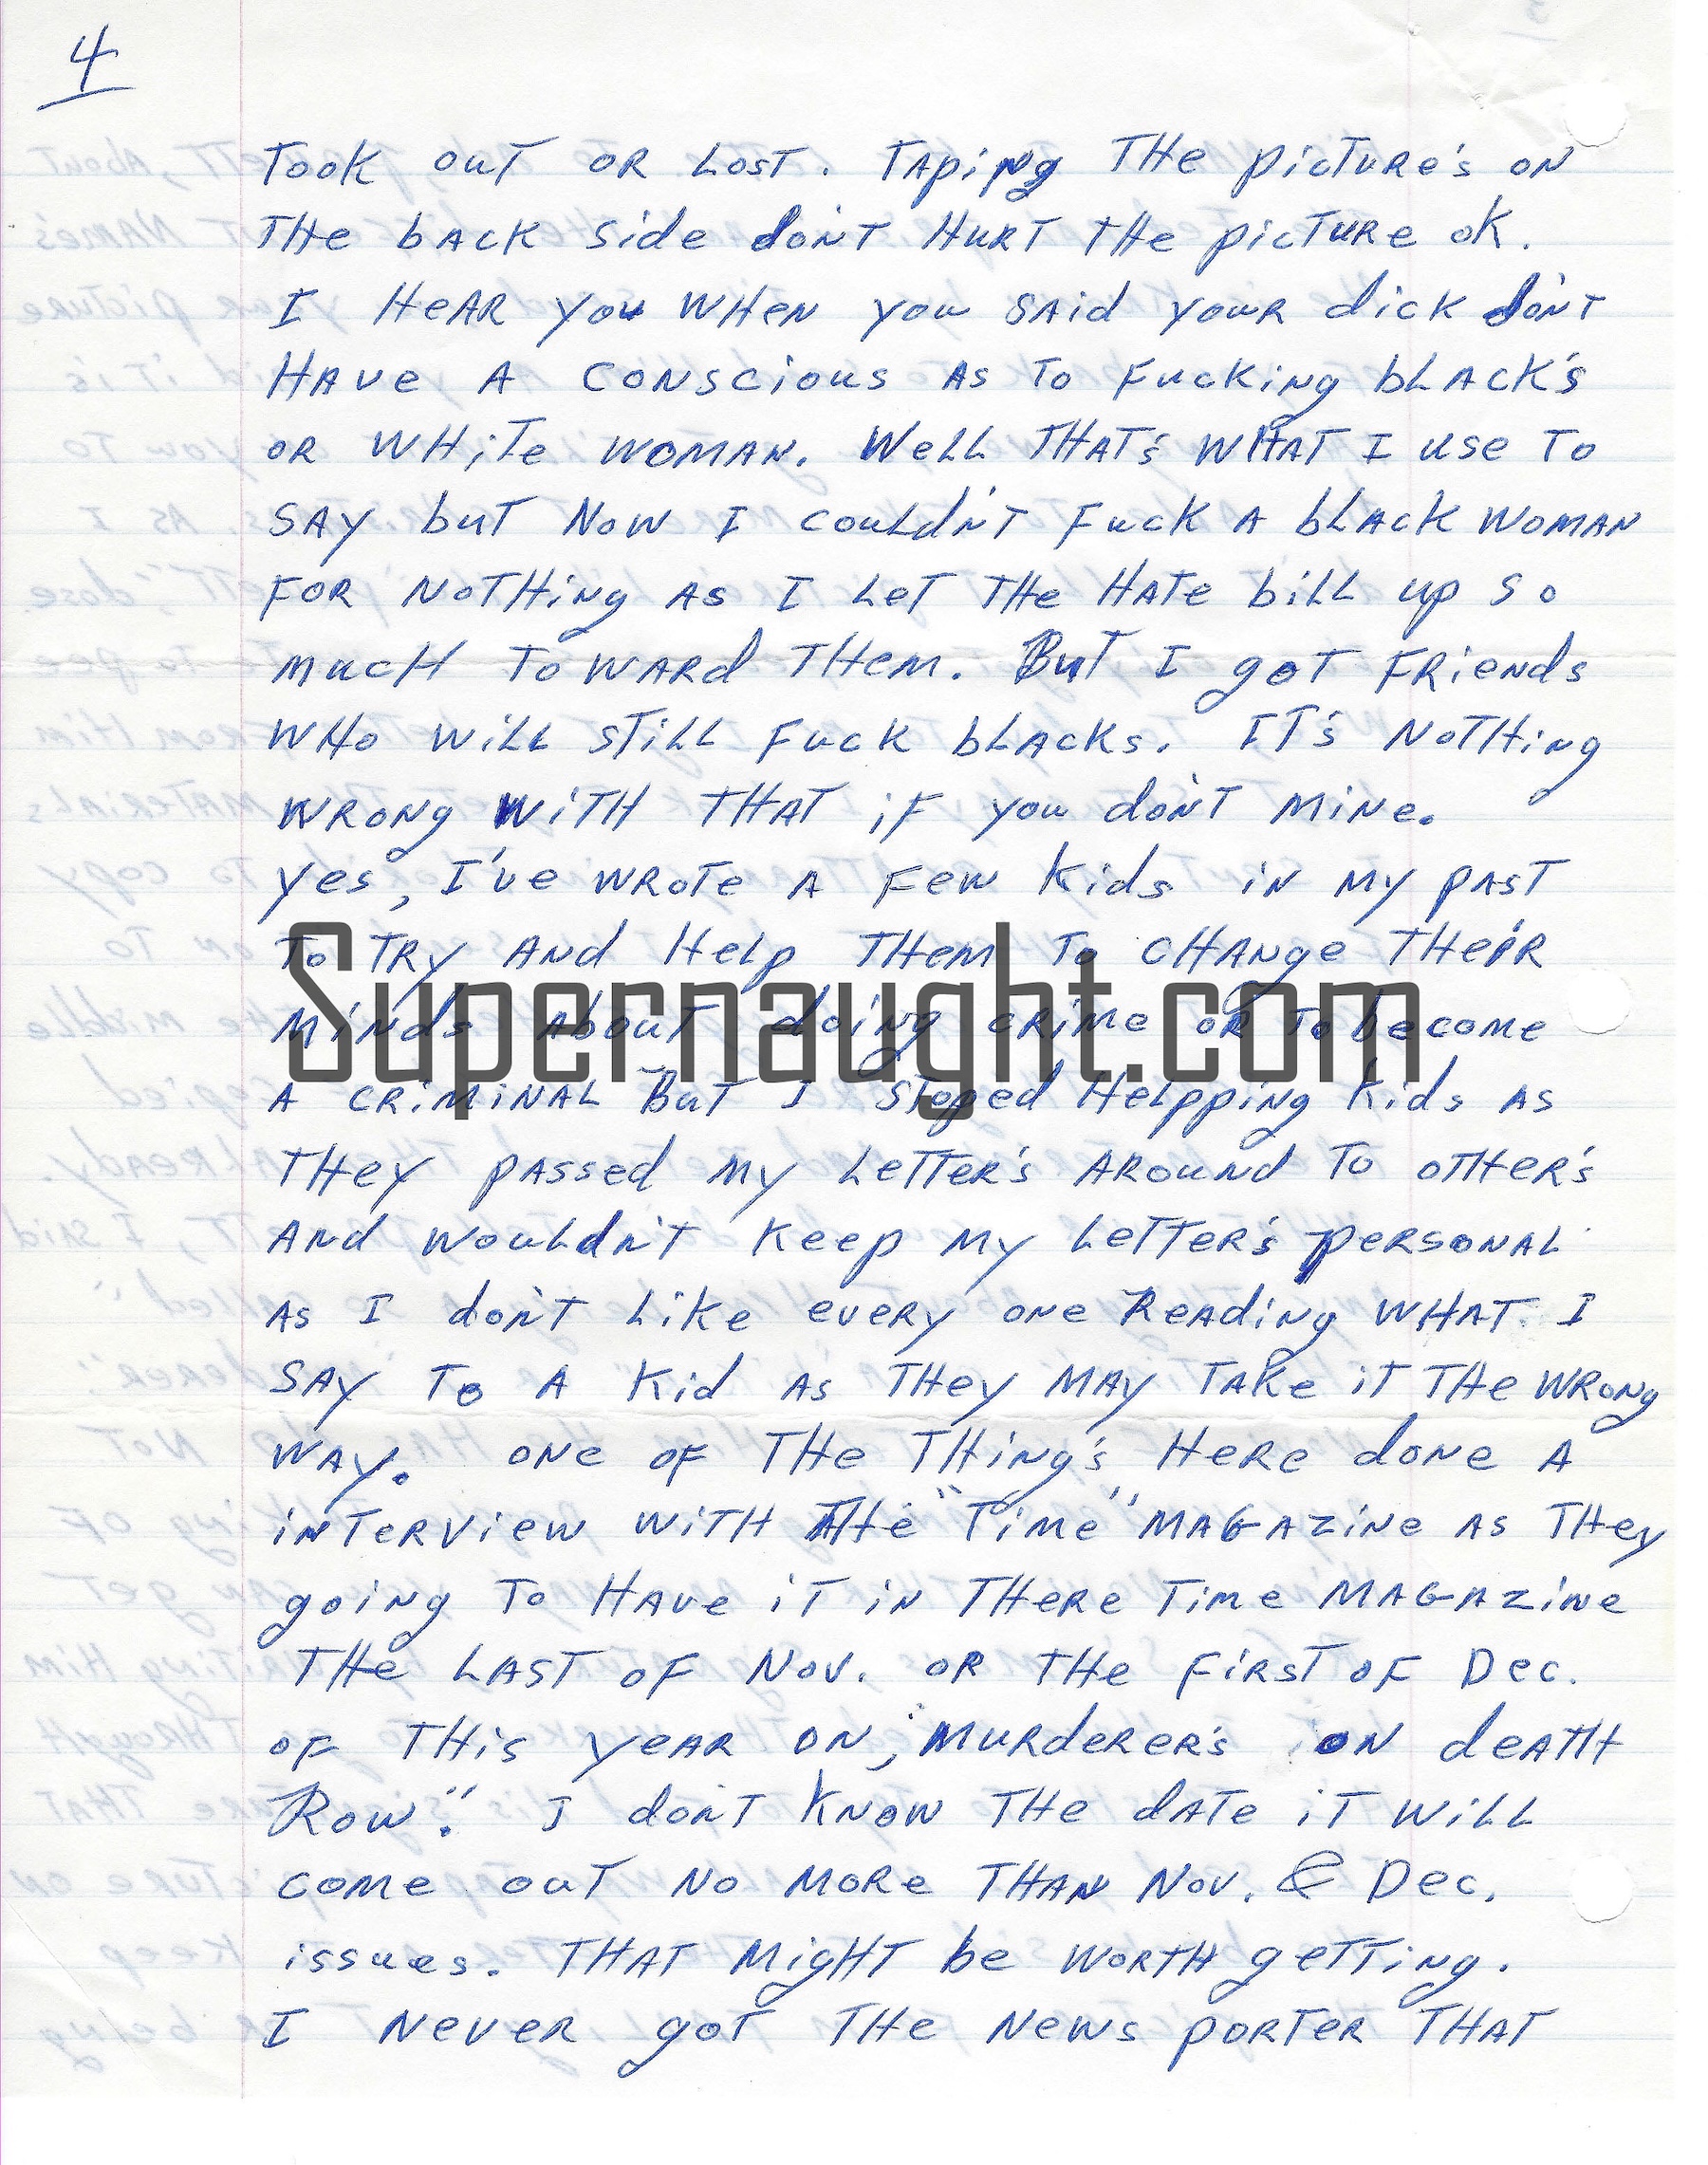 4
TOOK OUT OR LOST. TAPiNg THE picTURE's ON
THE bACK Side don'T HURT THE picTURE OK.
I HEAR YOU WHEN YOU SAid YOUR dick don'T
HAVE A CONSCIOUS AS TO FUCKiNg bLACK's
OR WHiTe WOMAN. WELL THAT's WHAT I USE TO
SAY buT NOW I COULdN'T FUCK A bLACK WOMAN
FOR NOTHiNg AS I LET THE HATE biLL up SO
MUCH TOWARd THEM. BuT I goT FRiENds
WHO WiLL STiLL FUCK bLACKs. IT's NOTHiNg
WRONg WiTH THAT iF YOU don'T MiNE.
Yes, I've WROTE A FEW Kids iN MY pAST
TO TRY ANd HELp THEM TO CHANge THEiR
MiNds AbOUT doiNg CRiME OR TO becOME
A CRiMiNAL BuT I SToped HELppiNg Kids AS
THEY pASSEd MY LETTER's AROUNd TO OTHER's
ANd WOULdN'T KEEp MY LETTER's pERSONAL
AS I don'T LiKE EVERY ONE READiNg WHAT I
SAY TO A Kid AS THEY MAY TAKE iT THE WRONg
WAY. ONE OF THE THiNg's HERE dONE A
iNTERViEW WiTH THE "TiME" MAGAZiNE AS THEY
gOiNg TO HAVE iT iN THERE TiME MAGAZiNE
THE LAST OF NOV. OR THE FiRST OF DEC.
OF THiS YEAR ON, "MURdERER's ON dEATH
ROW." I doNT KNOW THE dATE iT WiLL
COME OUT NO MORE THAN NOV. & DEC.
issues. THAT MigHT be WORTH geTTiNg.
I NEVER goT THE NEWS pORTER THAT
Supernaught.com